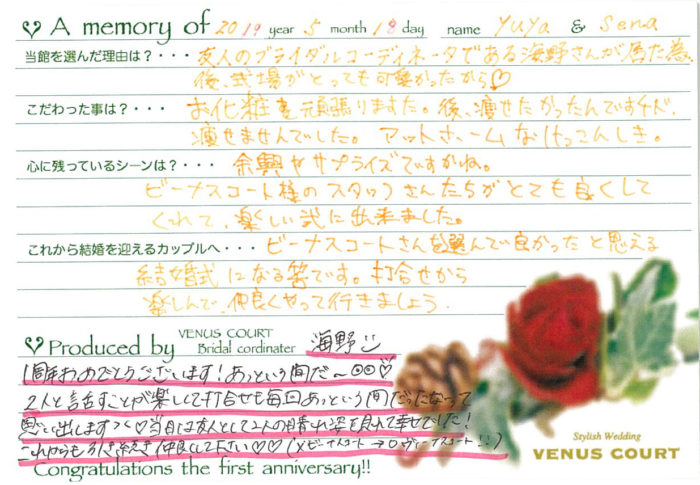 A memory of 2019 year 5 month 18 day name Yuya & Sena
当館を選んだ理由は?・・・友人のブライダルコーディネータである海野さんが居た為。
後、式場がとっても可愛かったから♡
こだわった事は?・・・お化粧を頑張りました。後、痩せたかったんですけど、
痩せませんでした。アットホームなけっこんしき。
心に残っているシーンは?・・・余興やサプライズですかね。
ビーナスコート様のスタッフさんたちがとても良くして
くれて、楽しい式に出来ました。
これから結婚を迎えるカップルへ・・・ビーナスコートさんを選んで良かったと思える
結婚式になる筈です。打合せから
楽しんで、仲良くやって行きましょう
Produced by VENUS COURT Bridal cordinater 海野
1周年おめでとうございます!あっという間だ〜
2人と話すことが楽しくて打合せも毎回あっという間だったなって
思い出します♡当日は友人として2人の晴れ姿を見れて幸せでした!
これからも引き続き仲良くして下さい♡♡(×ビーナスコート→○ヴィーナスコート!!)
Congratulations the first anniversary!!
Stylish Wedding
VENUS COURT